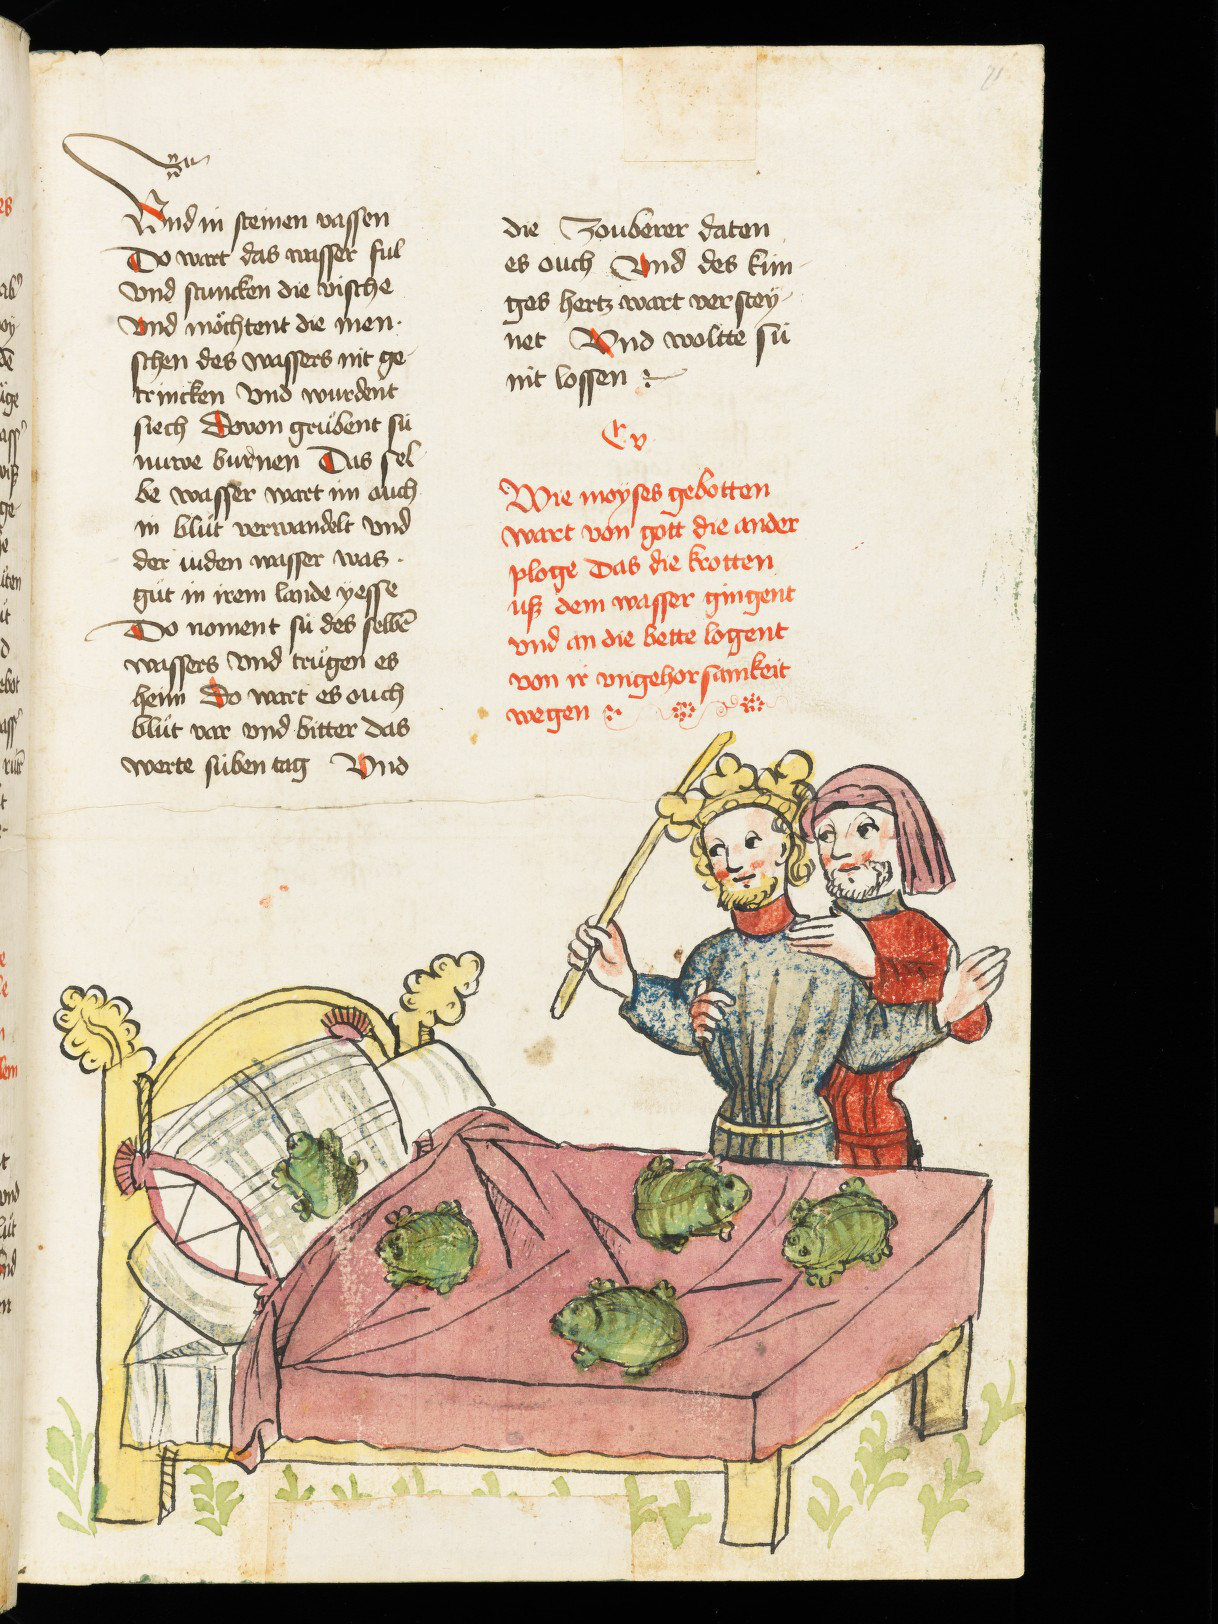 Vnd in steinen vassen
Do wart das wasser ful
vnd stuncken die vische
vnd möchtent die men-
schen des wassers nit ge-
trincken vnd wurdent
siech Dovon grůbent sü
nuwe burnen Das sel-
be wasser wart im ouch
in blůt verwandelt vnd
der iuden wasser was
gůt in irem lande yesse
Do noment sü des selbē
wassers vnd trůgen es
heim Do wart es ouch
blůt var vnd bitter das
werte süben tag Vnd
die Zouberer daten
es ouch Vnd des kün-
ges hertz wart verstey-
net Vnd woltte sü
nit lossen
Cv
Wie moyses gebotten
wart von gott die ander
ploge Das die krotten
uß dem wasser gingent
vnd an die bette logent
von ir vngehorsamkeit
wegen
71